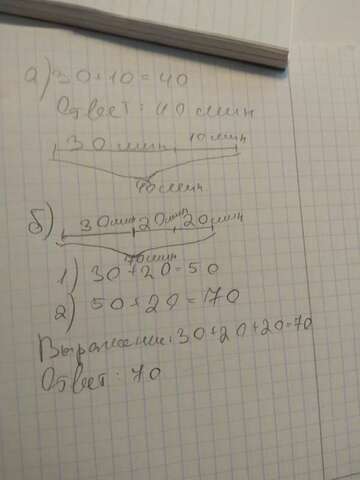 а) 30+10=40
Ответ: 40 мин
30 мин 10 мин
40 мин
б) 30 мин 20 мин 20 мин
70 мин
1) 30+20=50
2) 50+20=170
Выражение: 30+20+20=70
Ответ: 70